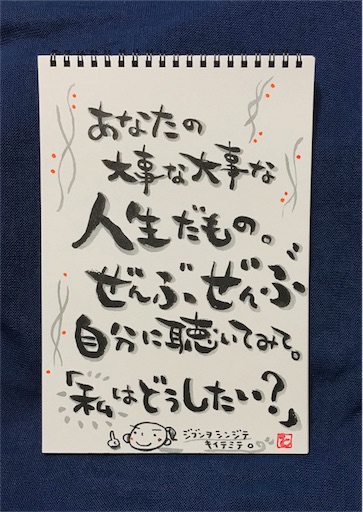 あなたの
大事な大事な
人生だもの。
ぜんぶ、ぜんぶ
自分に聴いてみて。
「私はどうしたい？」
ジブンヲシンジテ
キイテミテ。